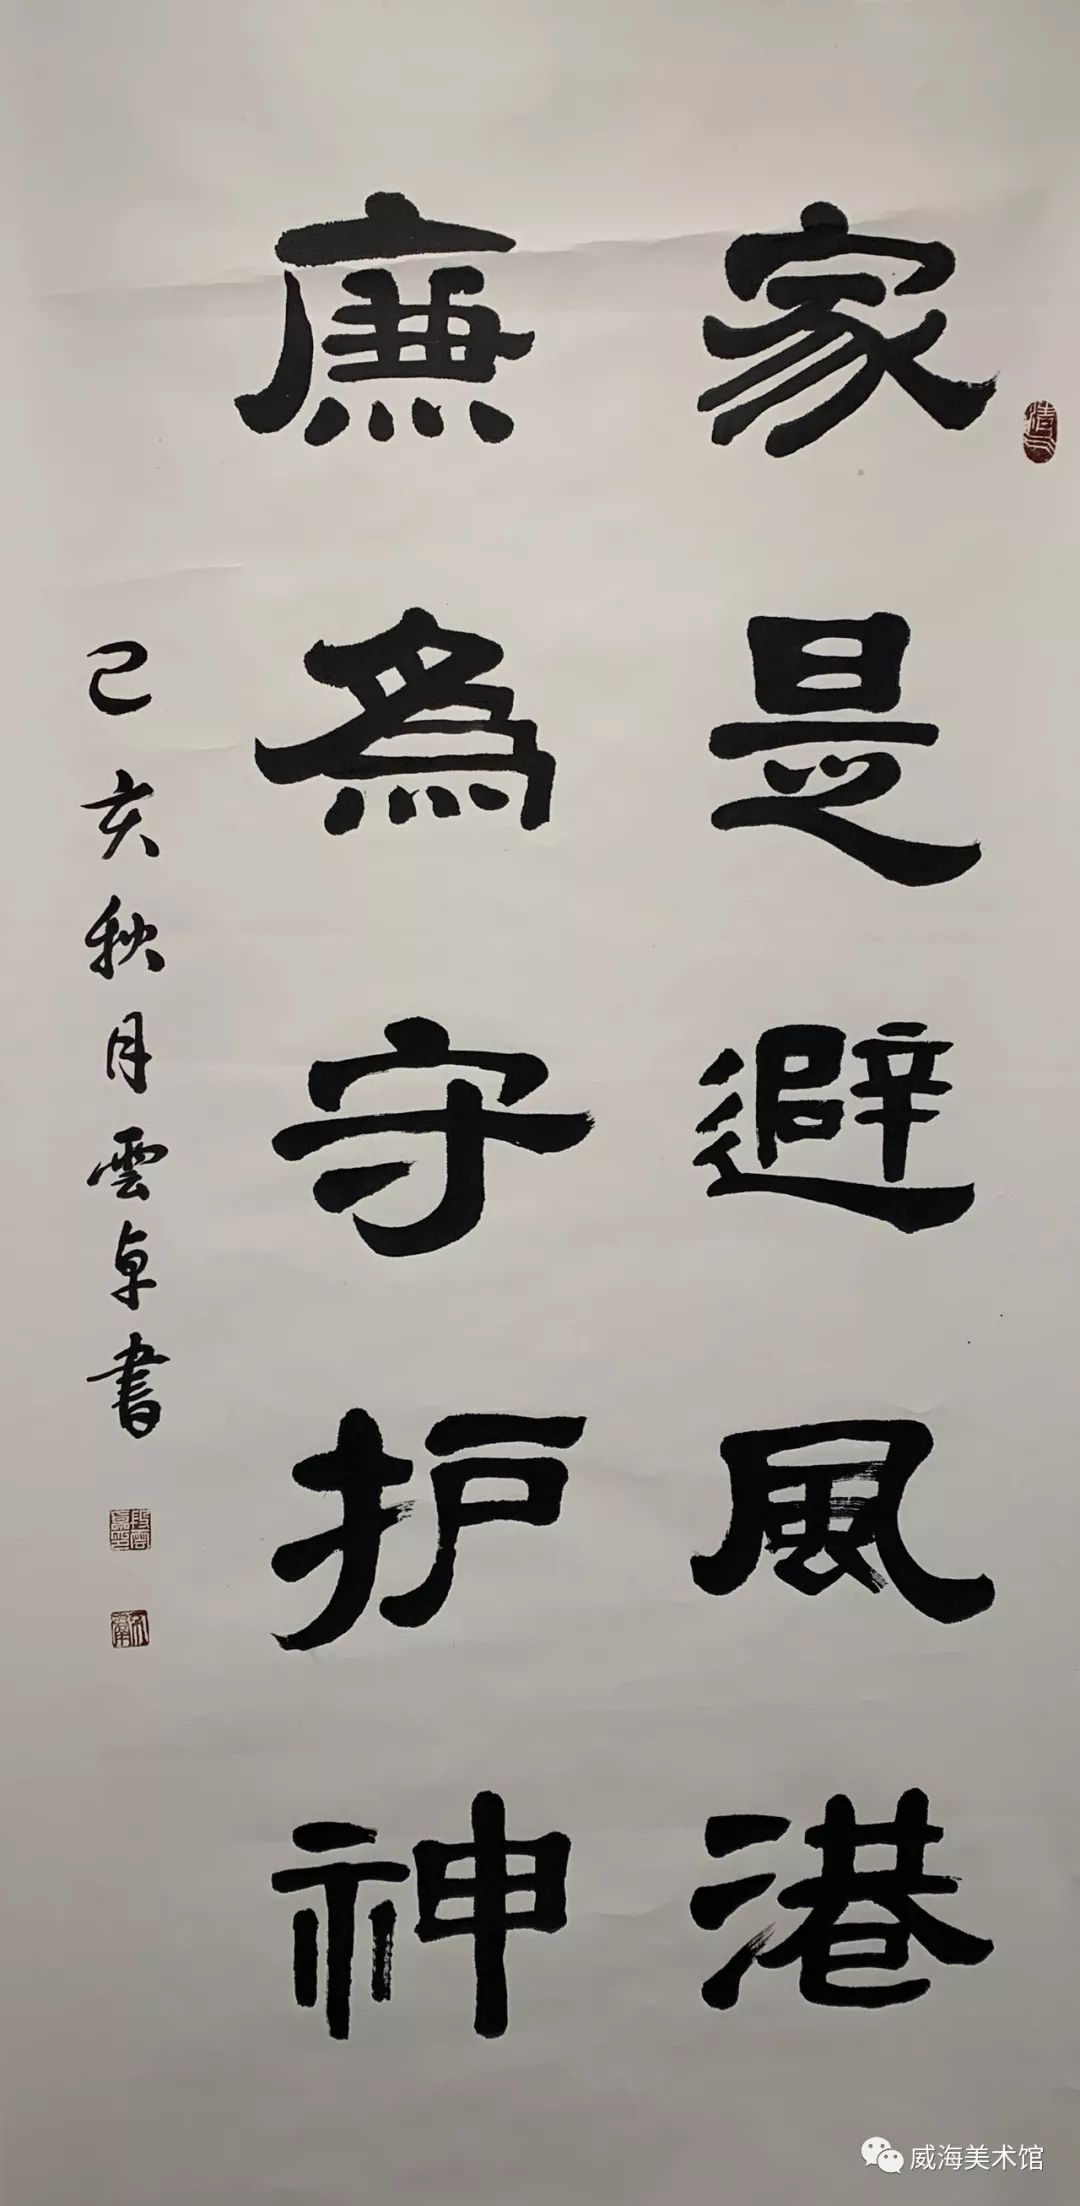 家是避風港
廉為守护神
己亥秋月雲卓書
威海美术馆